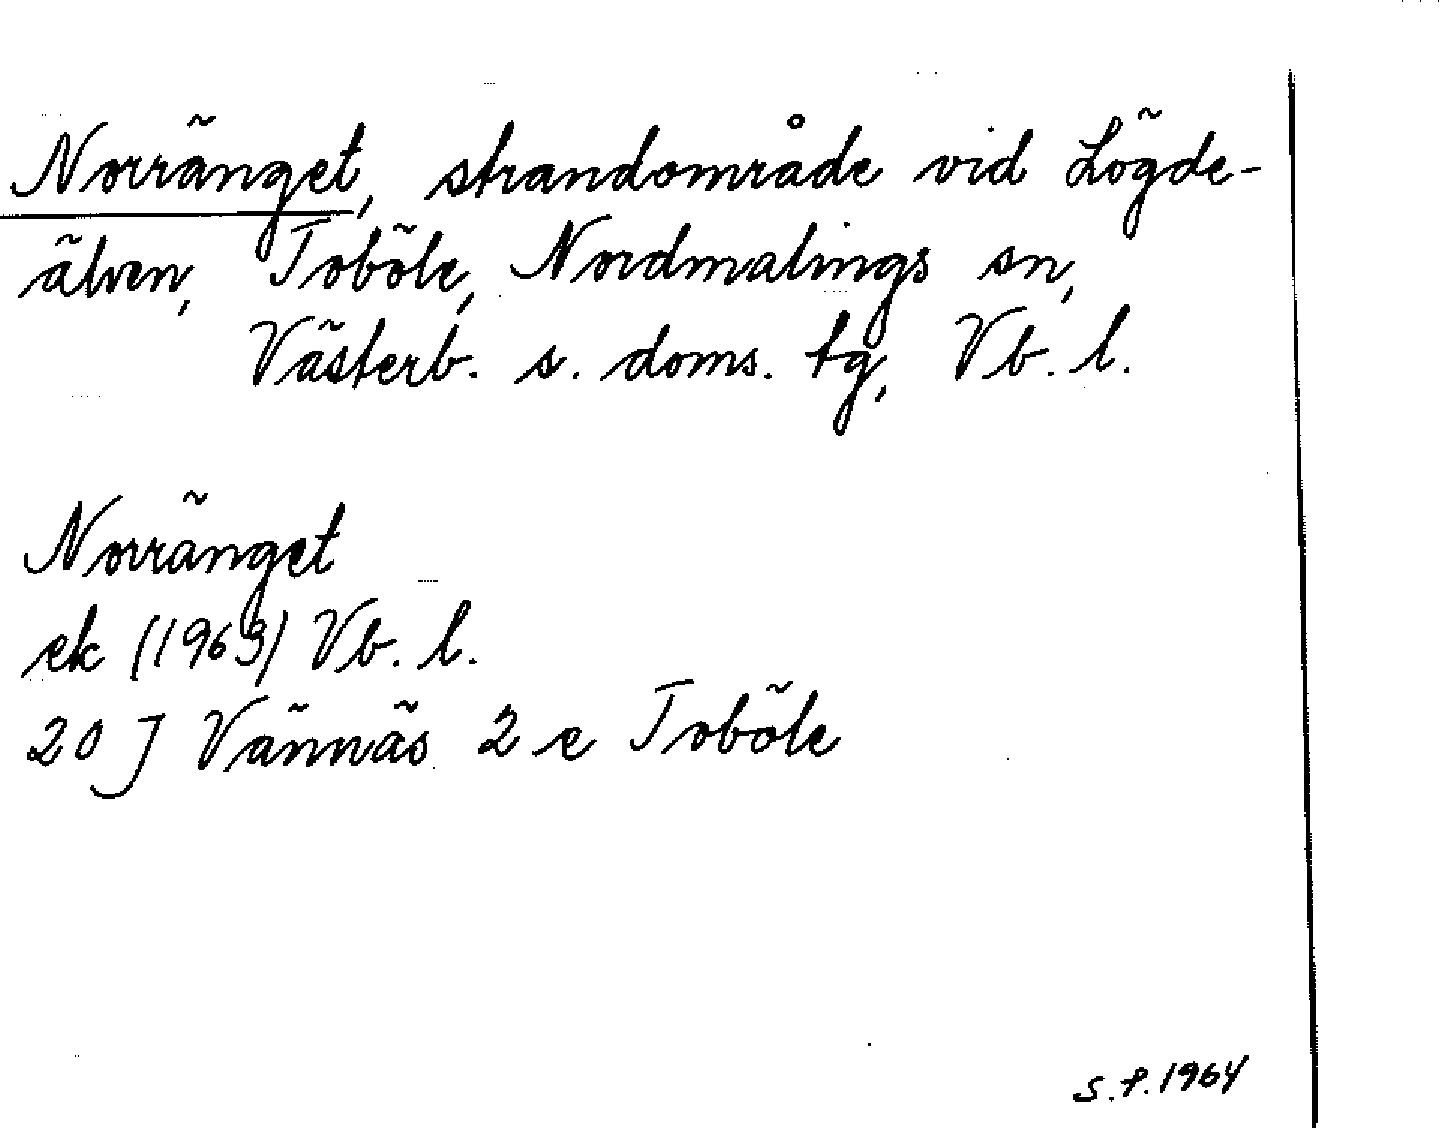 Norränget, strandområde vid Lögde-
älven, Toböle, Nordmalings sn,
Västerb. s. doms. tg, Vb. l.
Norränget
ek (1963) Vb. l.
20 J Vännäs 2 e Toböle
S.P. 1964